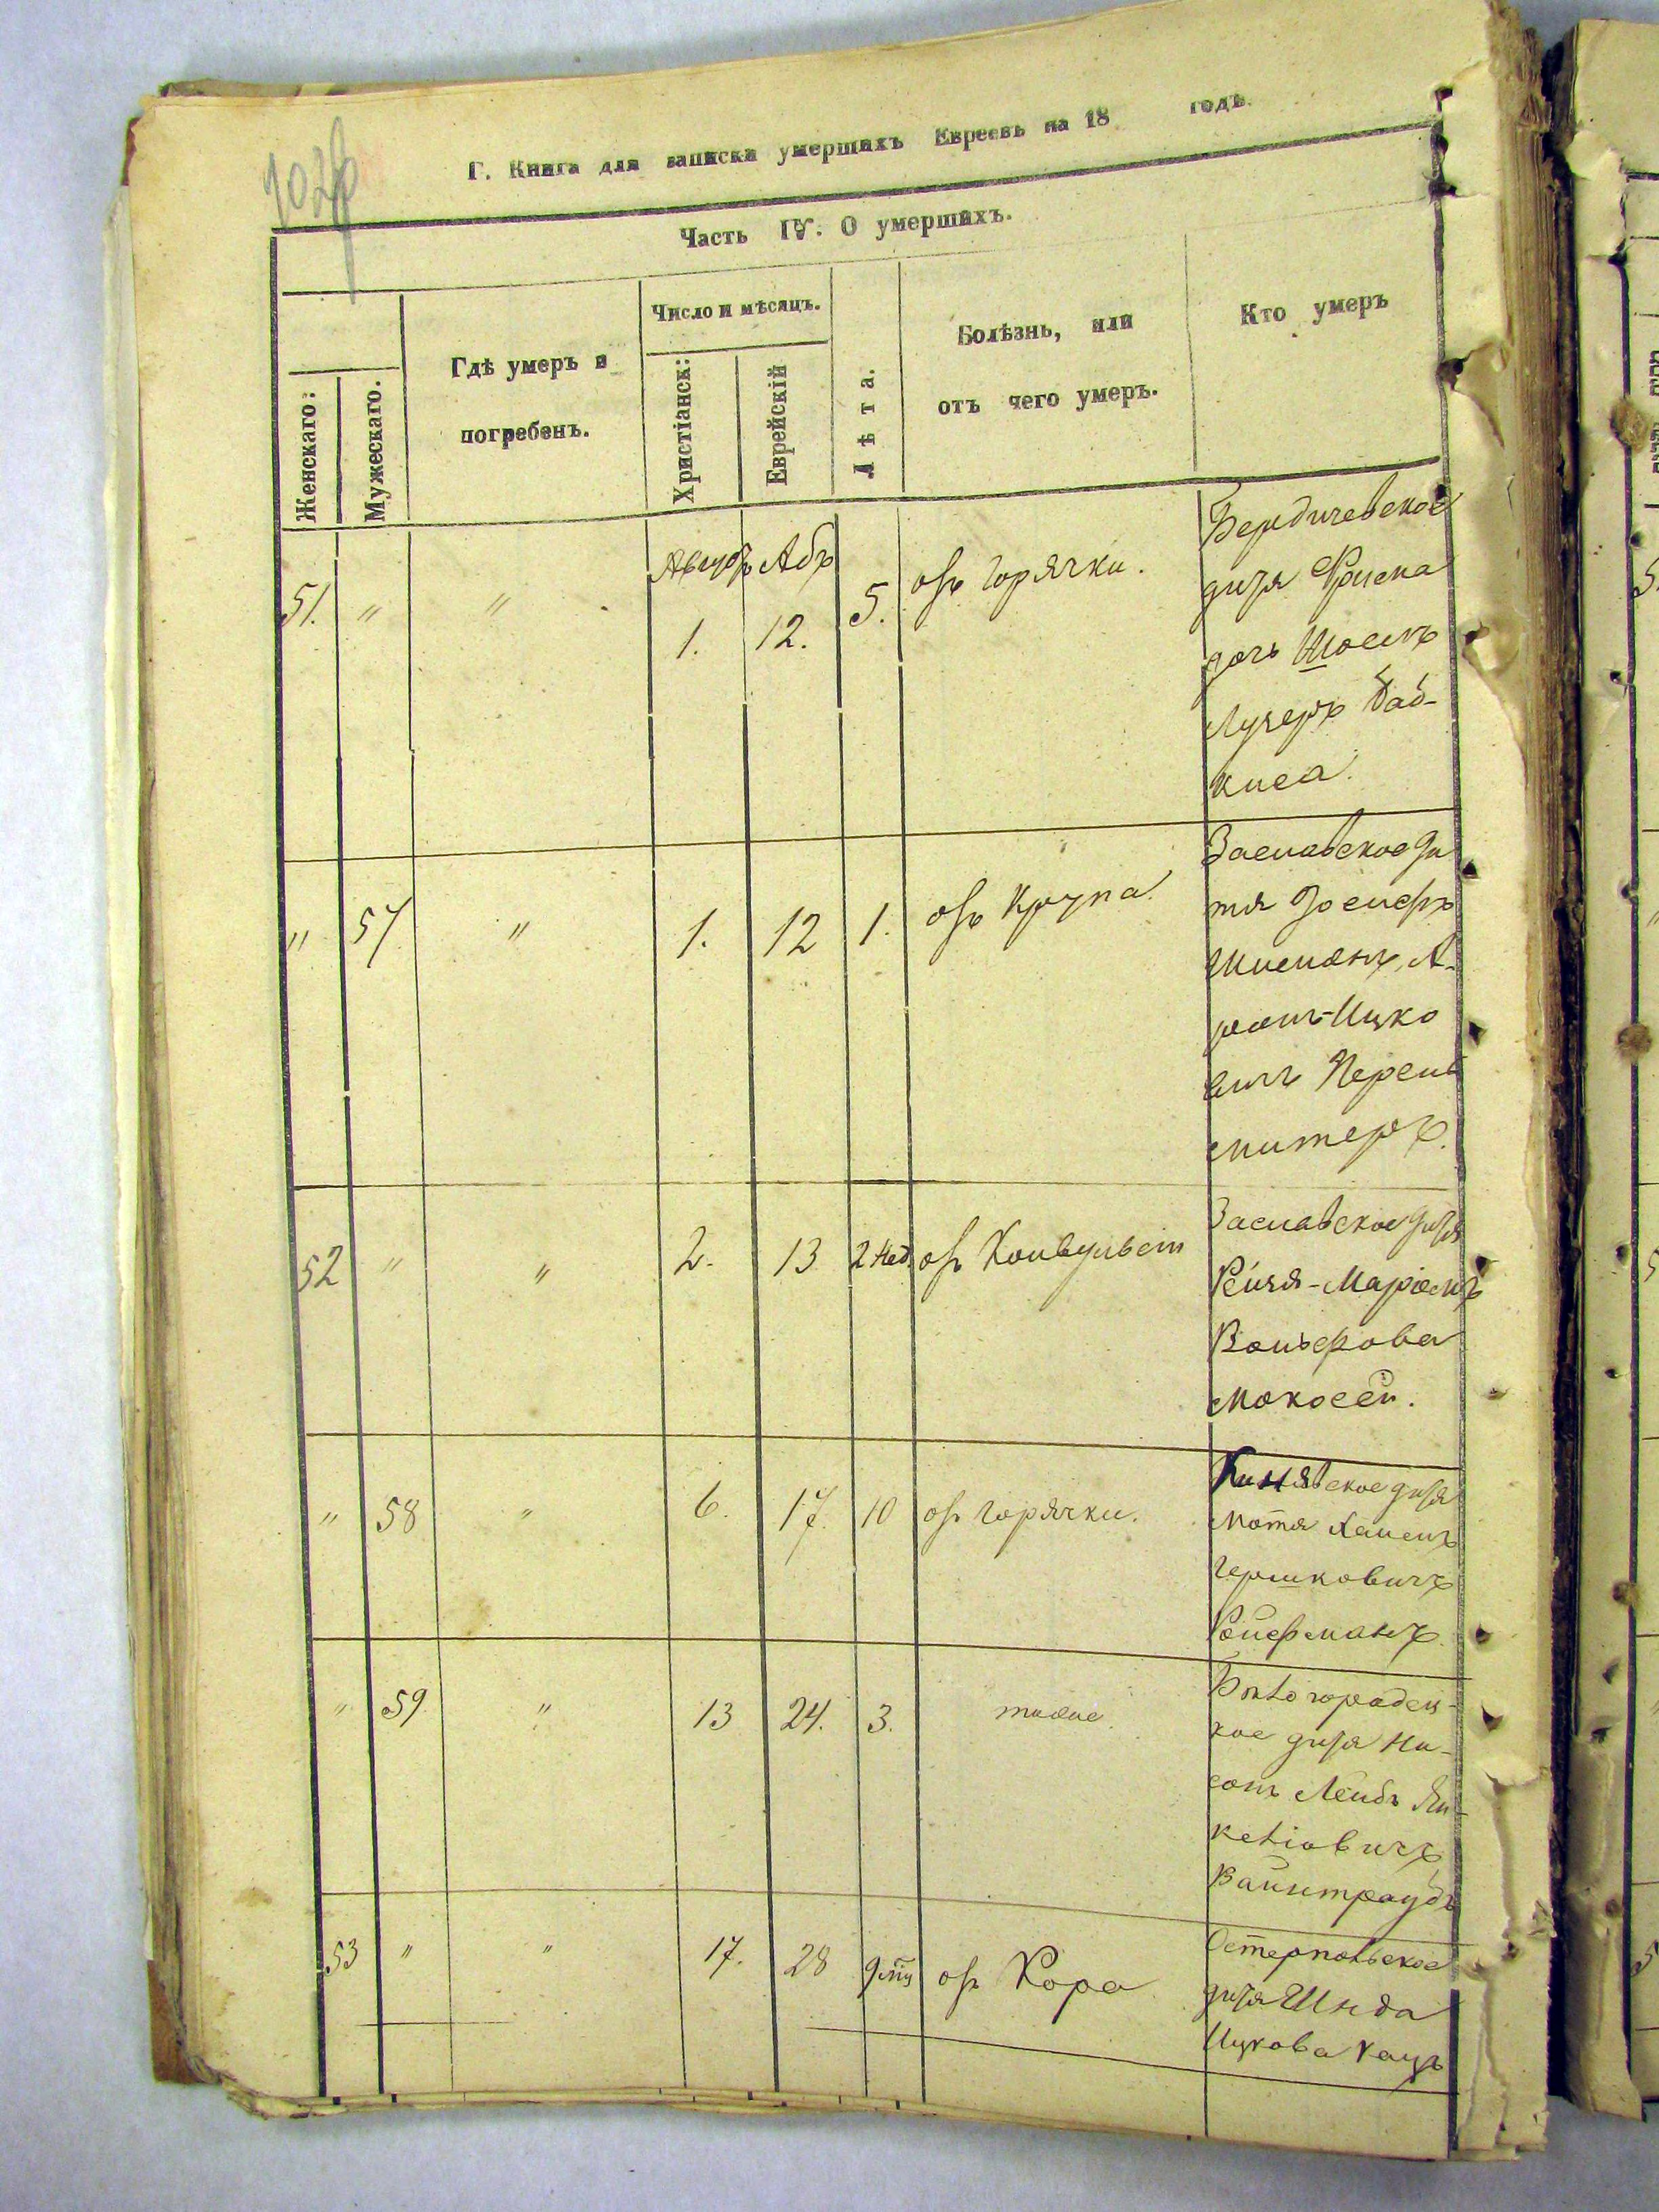 Г. Книга для записки умершихъ Евреевъ на 18 годъ.
Часть IV. О умершихъ.
Женскаго:
Мужескаго.
Гдѣ умеръ и
погребенъ.
Число и мѣсяцъ.
Христіанск:
Еврейскій
Лѣта.
Болѣзнь, или
отъ чего умеръ.
Кто умеръ
Августъ Абъ
51. " " 1. 12. 5. отъ горячки.
Бердичевское
дитя Фрима
дочь
Бад-
киса.
" 57 " 1. 12 1. отъ Крупа.
Заславское ди
тя Iосифъ
А-
ронъ-Ицко
вичъ Перель
митеръ.
52 " " 2. 13 2 Нед. отъ Конвульсіи
Заславское дитя
Рейзя-Маріемъ
Вольфова
Мокосей.
" 58 " 6. 17. 10 отъ горячки.
дитя
Мотя Хаимъ
Гершковичъ
Ройфманъ.
" 59. " 13 24. 3. тоже.
Бѣлогородск-
кое дитя Ни-
сонъ Лейбъ Ян-
келіовичъ
Вайнтраубъ
53 " " 17. 28 9 мц отъ Кора
Остерпольское
дитя Шнда
Ицкова Кацъ